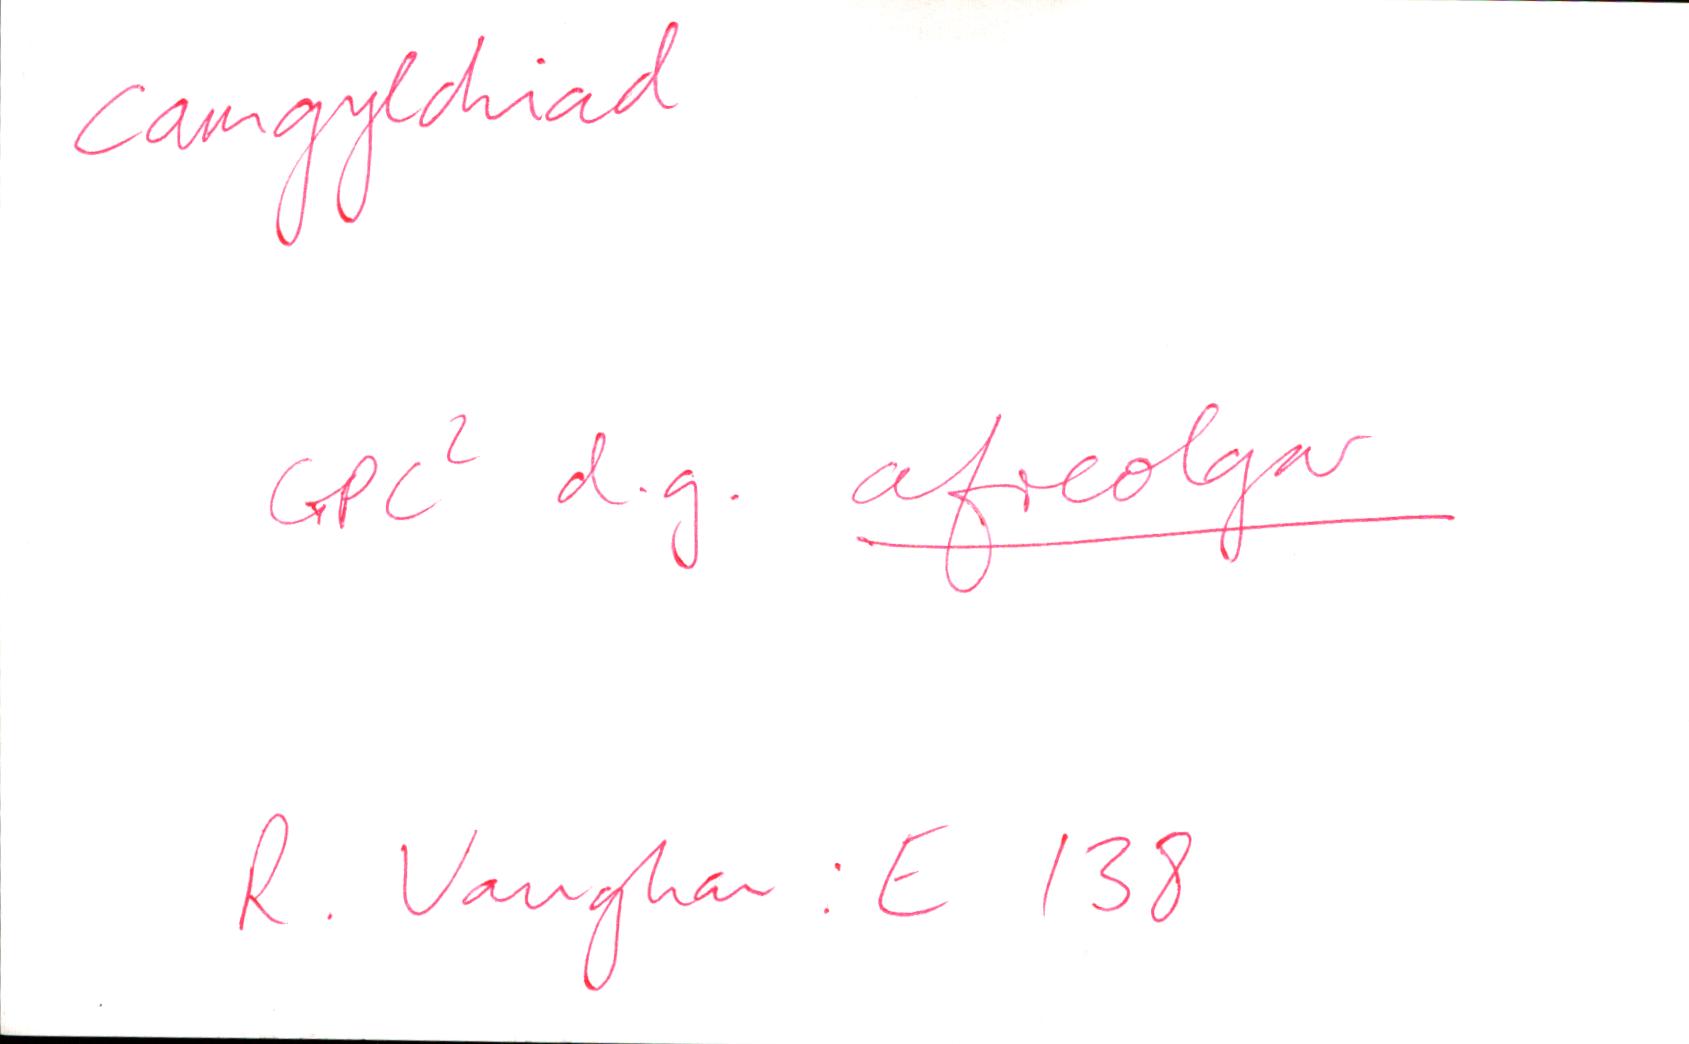 camgyldriad
GPC² d.g. afreolgar
R. Vaughan : E 138